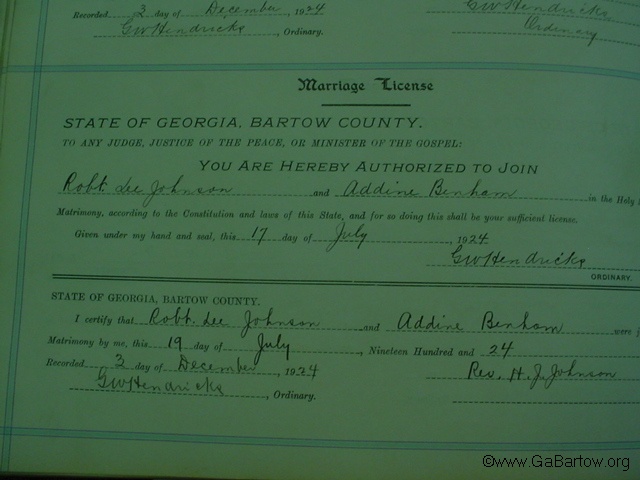 Recorded 3 day of December, 1924
GW Hendricks, Ordinary.
GW Hendricks
Ordinary
Marriage License
STATE OF GEORGIA, BARTOW COUNTY.
TO ANY JUDGE, JUSTICE OF THE PEACE, OR MINISTER OF THE GOSPEL:
YOU ARE HEREBY AUTHORIZED TO JOIN
Robt. Lee Johnson and Addine Benham in the Holy
Matrimony, according to the Constitution and laws of this State, and for so doing this shall be your sufficient license.
Given under my hand and seal, this 17 day of July, 1924.
GW Hendricks
ORDINARY.
STATE OF GEORGIA, BARTOW COUNTY.
I certify that Robt. Lee Johnson and Addine Benham were
Matrimony by me, this 19 day of July, Nineteen Hundred and 24
Recorded 3 day of December, 1924
Rev. H. J. Johnson
GW Hendricks, Ordinary.
©www.GaBartow.org